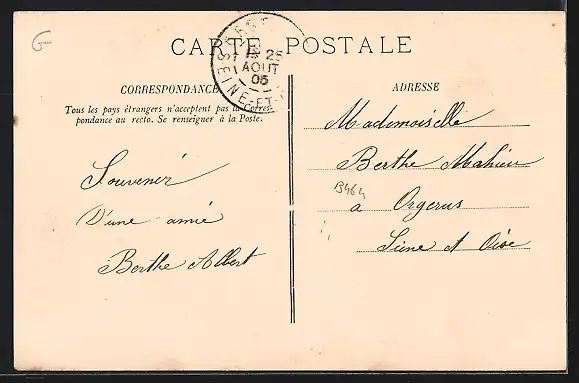 G
CARTE POSTALE
25
AOUT
05
CORRESPONDANCE
Tous les pays étrangers n'acceptent pas la Corres-
pondance au recto. Se renseigner à la Poste.
Souvenir
D'une amie
Berthe Albert
ADRESSE
Mademoiselle
Berthe Mahieu
B464
a Orgerus
Seine et Oise